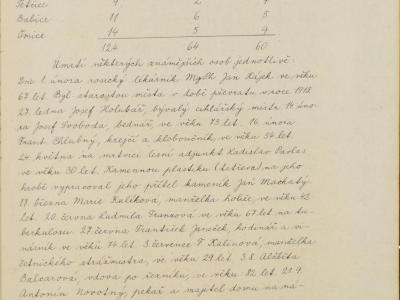 Tetčice 9 2 7
Babice 11 6 5
Omice 14 5 9
124 64 60
Úmrtí některých známějších osob jednotlivě:
Dne 1. února rosický lékárník MgPh Jan Hájek ve věku
67 let. Byl starostou města v době převratu v roce 1918.
27. ledna Josef Holubář, bývalý cihlářský mistr. 14. úno-
ra Josef Svoboda, bednář, ve věku 73 let. 16. února
Frant. Chlubný, krejčí a kloboučník, ve věku 54 let.
24. května na mrtvici lesní adjunkt Ladislav Pavlas
ve věku 30 let. Kamennou plastiku (tetřeva) na jeho
hrobě vypracoval jeho přítel kameník Jan Machatý.
18. března Marie Kulíková, manželka holiče, ve věku 42
let. 20. června Ludmila Franková ve věku 67 let na tu-
berkulosu. 27. června František Janíček, hodinář a vi-
nárník ve věku 74 let. 3. července F. Kalinová, manželka
četnického strážmistra, ve věku 29 let. 3.8. Alžběta
Balcarová, vdova po řezníku, ve věku 82 let. 23.9.
Antonín Novotný, pekař a majitel domu na ná-